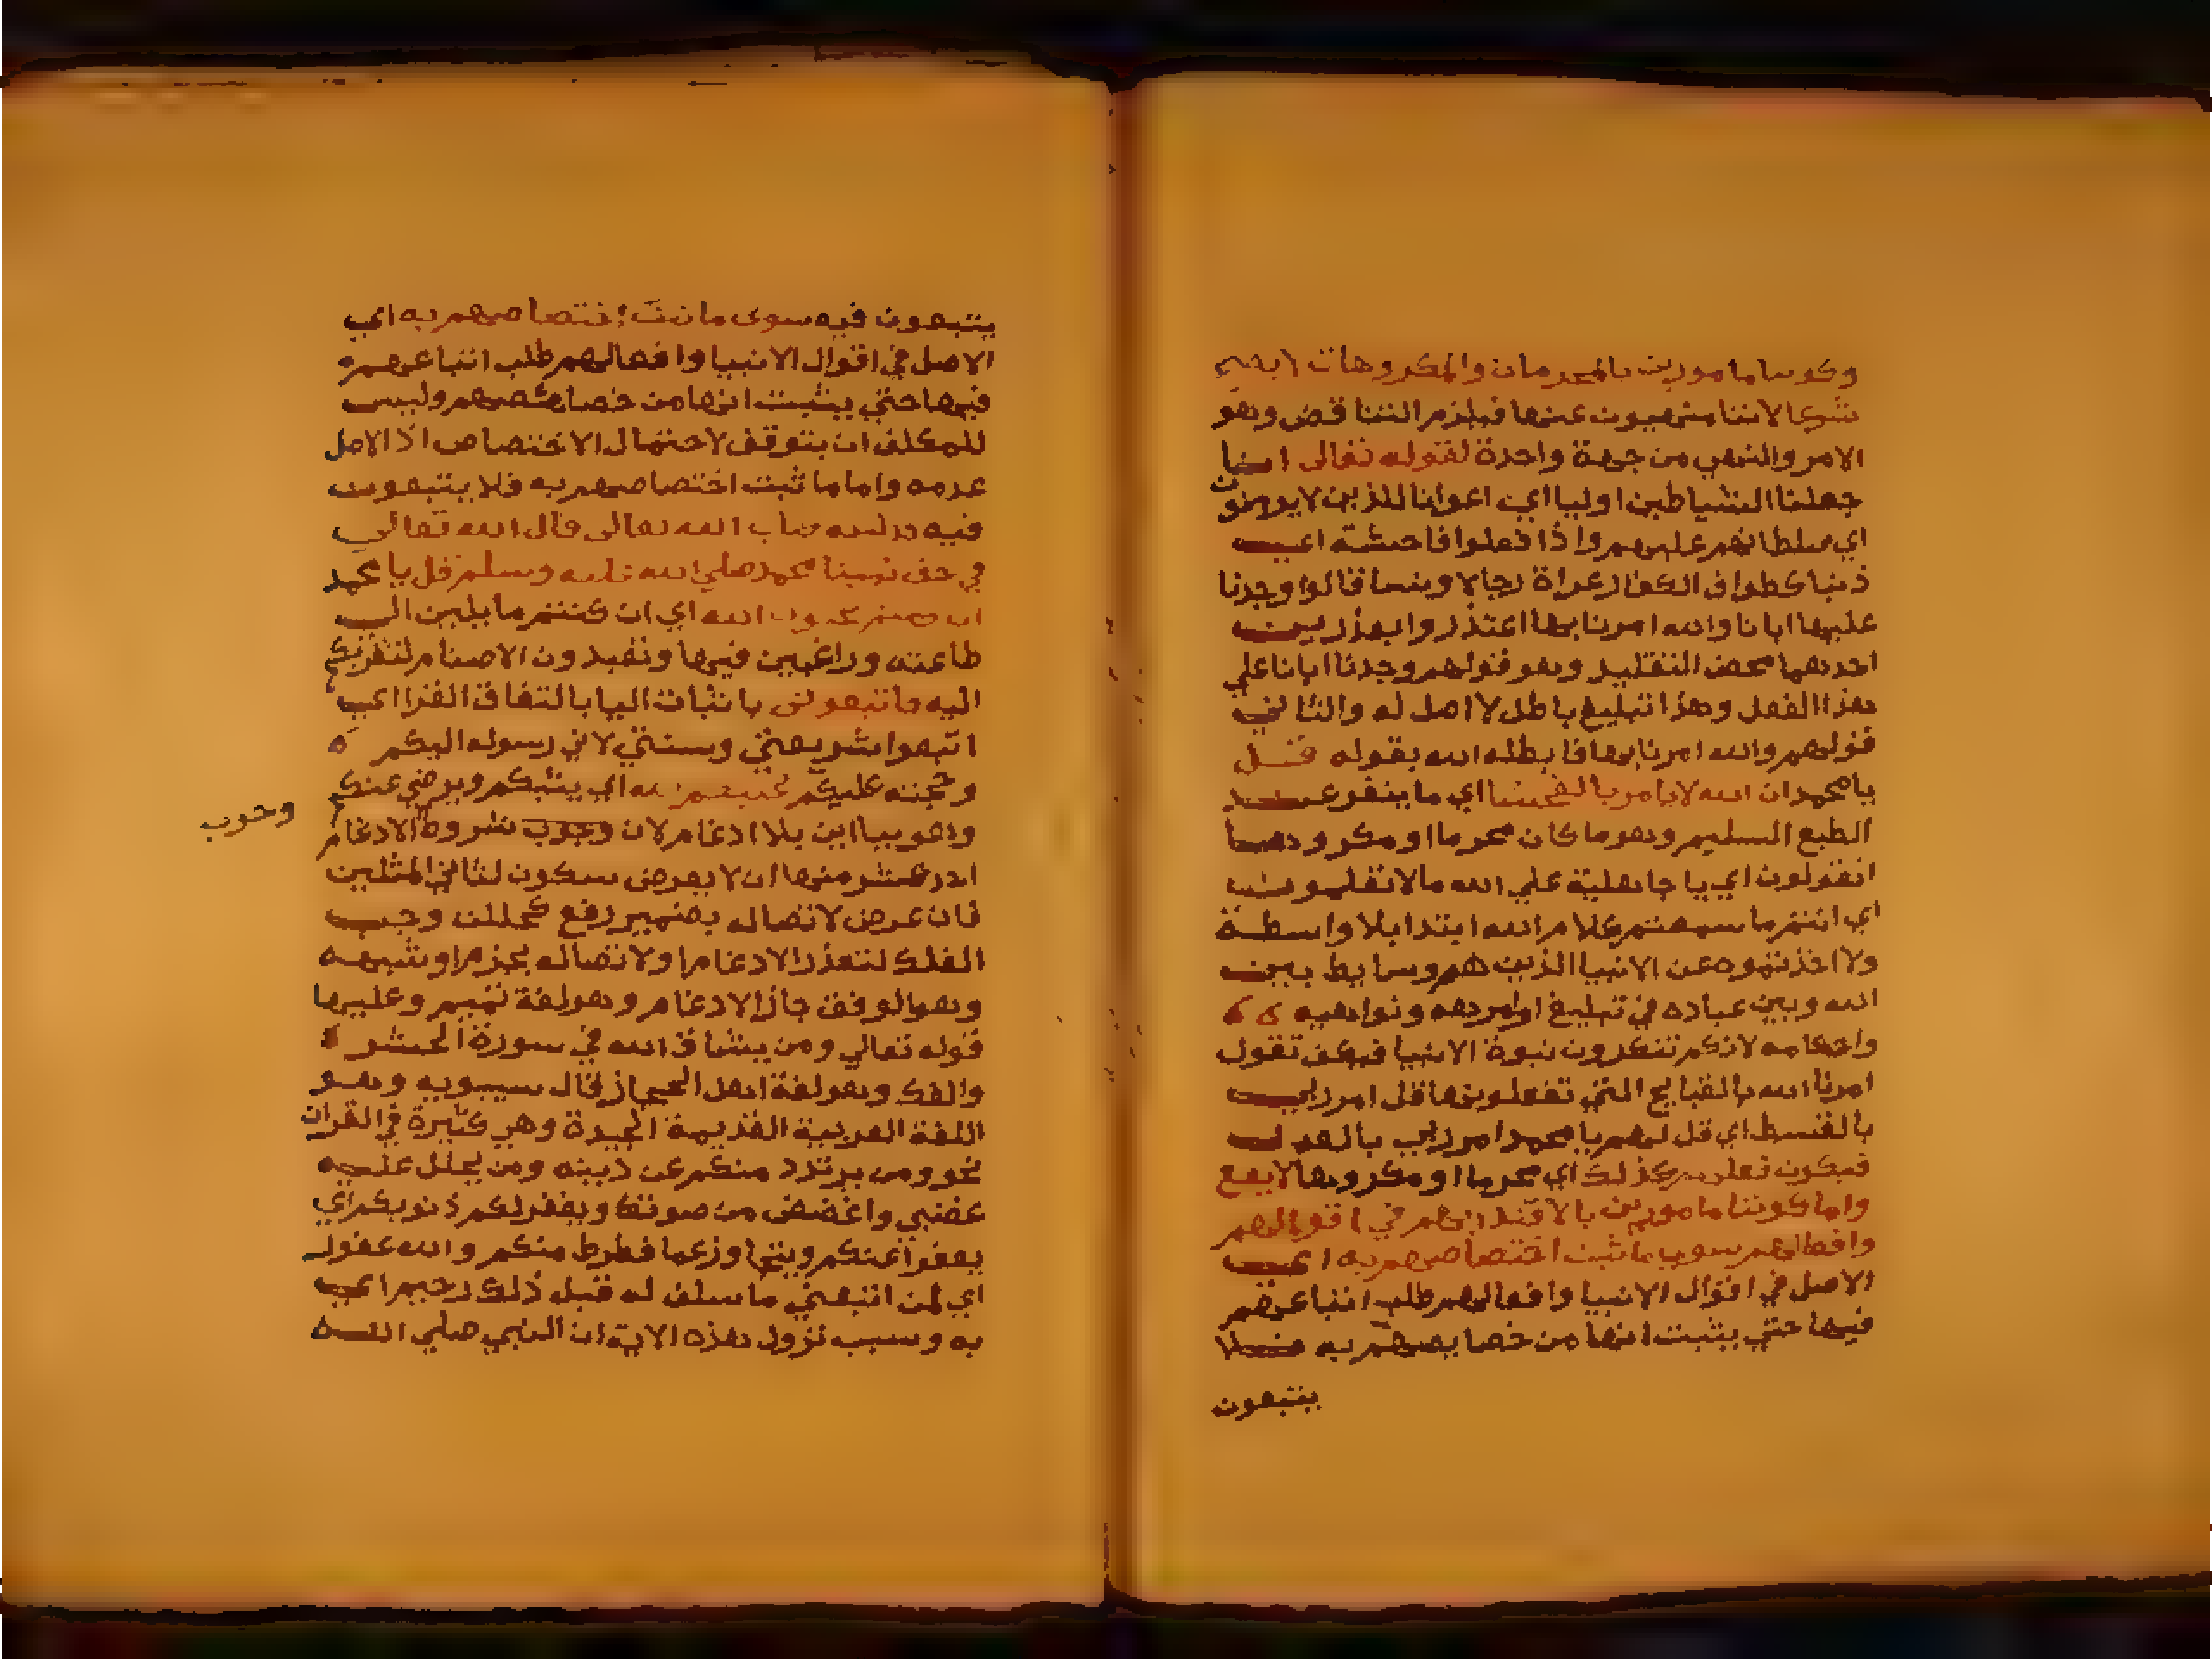 وكوننا مامورين بالمحرمات والمكروهات لا يصح
شرعا لاننا منهيون عنها فيلزم التناقض وهو
الامر والنهي من جهة واحدة لقوله تعالى انا
جعلنا الشياطين اوليا اي اعوانا للذين لا يومنون
اي سلطانهم عليهم واذا فعلوا فاحشة اي
ذنبا كطواف الكفار عراة رجالا ونسا قالوا وجدنا
عليها ابانا والله امرنا بها اعتذروا بعذرين
احدهما محض التقليد وهو قولهم وجدنا ابانا علي
هذا الفعل وهذا تبليغ باطل لا اصل له والثاني
قولهم والله امرنا بها فابطله الله بقوله قل
يا محمد ان الله لا يامر بالفحشا اي ما ينفر عنه
الطبع السليم وهو ما كان محرما او مكروها
اتقولون اي يا جاهلية علي الله ما لا تعلمون
اي انتم ما سمعتم كلام الله ابتدا بلا واسطة
ولا اخذتموه عن الانبيا الذين هم وسايط بين
الله وبين عباده في تبليغ اوامره ونواهيه
واحكامه لانكم تنكرون نبوة الانبيا فكيف تقول
امرنا الله بالقبايح التي تفعلونها قل امر ربي
بالقسط اي قل لهم يا محمد امر ربي بالعدل
فيكون فعلهم كذلك اي محرما او مكروها لا يقع
واما كوننا مامورين بالاقتدا بهم في اقوالهم
وافعالهم سوي ما ثبت اختصاصهم به اي
الاصل في اقوال الانبيا وافعالهم طلب اتباعهم
فيها حتي يثبت انها من خصايصهم به فلا
يتبعون
يتبعون فيه سوى ما ثبت اختصاصهم به اي
الاصل في اقوال الانبيا وافعالهم طلب اتباعهم
فيها حتي يثبت انها من خصائصهم وليس
للمكلف ان يتوقف لاحتمال الاختصاص اذ الاصل
عدمه واما ما ثبت اختصاصهم به فلا يتبعون
فيه الله تعالى قال الله تعالي
في حق نبينا محمد صلي الله عليه وسلم قل يا محمد
ان كنتم تحبون الله اي ان كنتم مايلين الي
طاعته وراغبين فيها وتعبدون الاصنام لتقربكم
اليه فاتبعوني باثبات اليا بالتفاق القرا اي
اتبعوا شريعتي وسنتي لاني رسوله اليكم
وحجته عليكم يحببكم الله اي يثبكم ويرضي عنكم
وهو بيااين بلا ادغام لان وجوب شروط الادغام
احد عشر منها ان لا يعرض سكون لثاني المثلين
فان عرض لاتصاله بضمير رفع كحللت وجب
الفك لتعذر الادغام او لاتصاله بجزم او شبهه
وهو الوقف جاز الادغام وهو لغة تميم وعليها
قوله تعالي ومن يشاق الله في سورة الحشر
والفك وهو لغة اهل الحجاز قال سيبويه وهو
اللغة العربية القديمة الجيدة وهي كثيرة في القران
نحو ومن يرتدد منكم عن دينه ومن يحلل عليه
غضبي واغضض من صوتك ويغفر لكم ذنوبكم اي
يعفوا عنكم ويتجاوز عما فرط منكم والله غفور
اي لمن اتبعني ما سلف له قبل ذلك رحيم اي
به وسبب نزول هذه الاية ان النبي صلي الله
وجوب